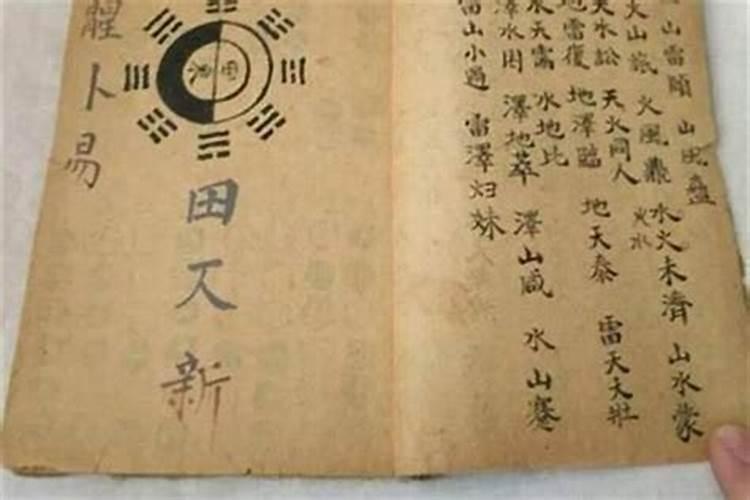 山雷頤 山風蠱
水火未濟 山水蒙
火水
火山旅 火風鼎
天水訟 天火同人
地天泰 雷天大壯
地雷復 地澤臨
水天需 水地比
澤水困 澤地萃 澤山咸 水山蹇
雷山小過 雷澤归妹
田
新
卜易